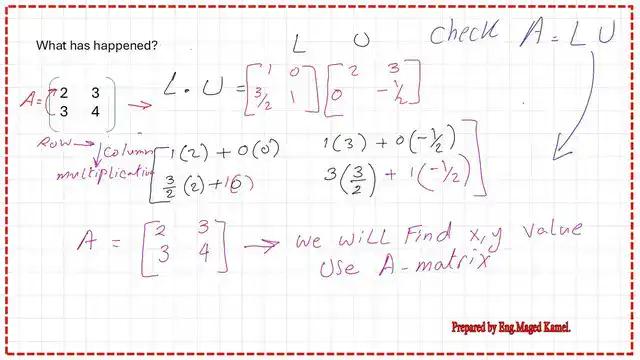 L U check A = L U
What has happened?
A = ( 2 3
3 4 ) → L . U = [ 1 0
3/2 1 ] [ 2 3
0 -1/2 ]
Row → column
multiplication
[ 1(2) + 0(0) 1(3) + 0(-1/2)
3/2 (2) + 1(0) 3(3/2) + 1(-1/2) ]
A = [ 2 3
3 4 ] → we will Find x,y value
Use A-matrix
Prepared by Eng.Maged Kamel.